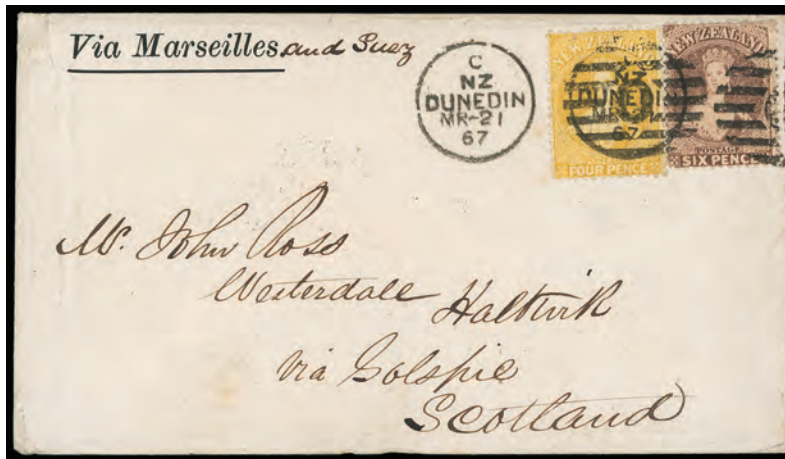 Via Marseilles and Suez
C
NZ
DUNEDIN
MR-21
67
NEW ZEALAND
FOUR PENCE
NZ
DUNEDIN
67
NEW ZEALAND
POSTAGE
SIX PENCE
Mr. John Ross
Westerdale Halkirk
via Golspie
Scotland